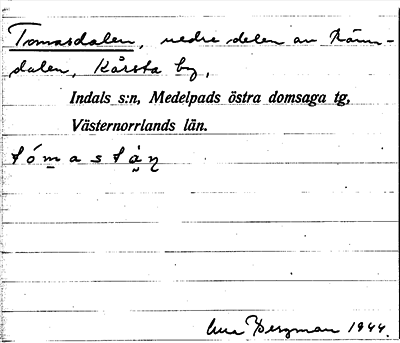 Tomasdalen, nedre delen av Ränn-
dalen, Kårsta by,
Indals s:n, Medelpads östra domsaga tg,
Västernorrlands län.
Bergman 1944.